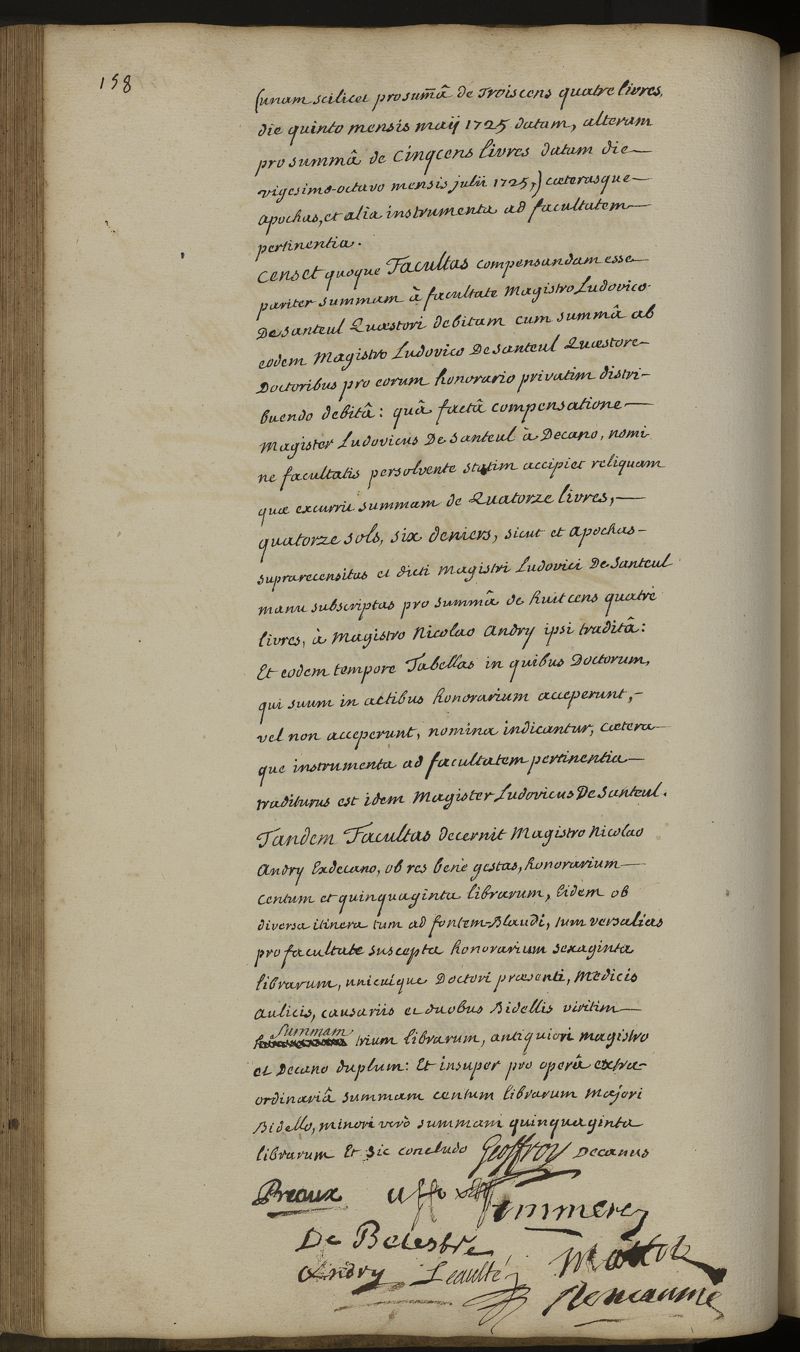 158
(unam scilicet pro sum̄â de Troiscens quatre livres,
die quinto mensis maij 1725 datam, alteram
pro summâ de Cinqcens livres datam die
vigesimo-octavo mensis julii 1725,) cæterasque
apochas, et alia instrumenta ad facultatem
pertinentia.
Censet quoque Facultas compensandam esse
pariter summam à facultate Magistro Ludovico
De Santeul Quæstori debitam cum summâ ab
eodem Magistro Ludovico De Santeul Quæstore
Doctoribus pro eorum honorario privatim distri-
buendo debitâ: quâ factâ compensatione
Magister Ludovicus De Santeul à Decano, nomi-
ne facultatis persolvente statim accipiet reliquam
quæ excurrit summam de Quatorze livres,
quatorze sols, six deniers, sicut et apochas
suprarecensitas et dicti Magistri Ludovici De Santeul
manu subscriptas pro summâ de huit cens quatre
livres, à Magistro Nicolao Andry ipsi traditâ:
Et eodem tempore Tabellas in quibus Doctorum,
qui suum in actibus honorarium acceperunt,
vel non acceperunt, nomina indicantur, cætera
que instrumenta ad facultatem pertinentia
traditurus est idem Magister Ludovicus De Santeul.
Tandem Facultas decernit Magistro Nicolao
Andry Exdecano, ob res benè gestas, honorarium
centum et quinquaginta librarum, Eidem ob
diversa itinera tum ad fontem-Blaudi, tum versalias
pro facultate suscepta honorarium sexaginta
librarum, unicuique Doctori præsenti, Medicis
aulicis, causariis et duobus Bidellis viritim
summam
trium librarum, antiquiori magistro
et Decano duplum: Et insuper pro operâ extra-
ordinariâ summam centum librarum Majori
Bidello, minori verò summam quinquaginta
librarum Et sic concludo Geoffroy Decanus
Preaux
Emmerez
De Belestre
Andry Leaulté